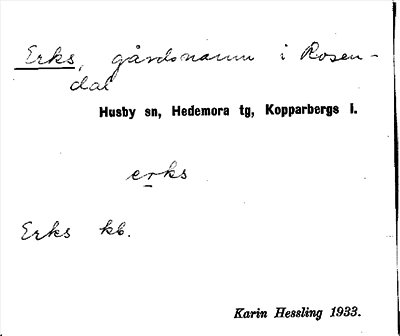 Erks, gårdsnamn i Rosen-
dal
Husby sn, Hedemora tg, Kopparbergs l.
erks
Erks kb.
Karin Hessling 1933.